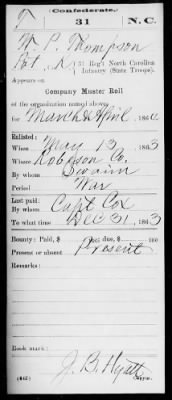 (Confederate.)
T 31 N.C.
W. P. Thompson
Pvt, Co. K, 31 Reg't North Carolina
Infantry (State Troops).
Appears on
Company Muster Roll
of the organization named above,
for March & April, 1864.
Enlisted:
When May 13, 1863
Where Robeson Co.
By whom Swain
Period War
Last paid:
By whom Capt Cox
To what time Dec 31, 1863
Bounty: Paid, $ ; due, $ 100
Present or absent Present
Remarks:
Book mark:
J. B. Hyatt
(642) Copyist.